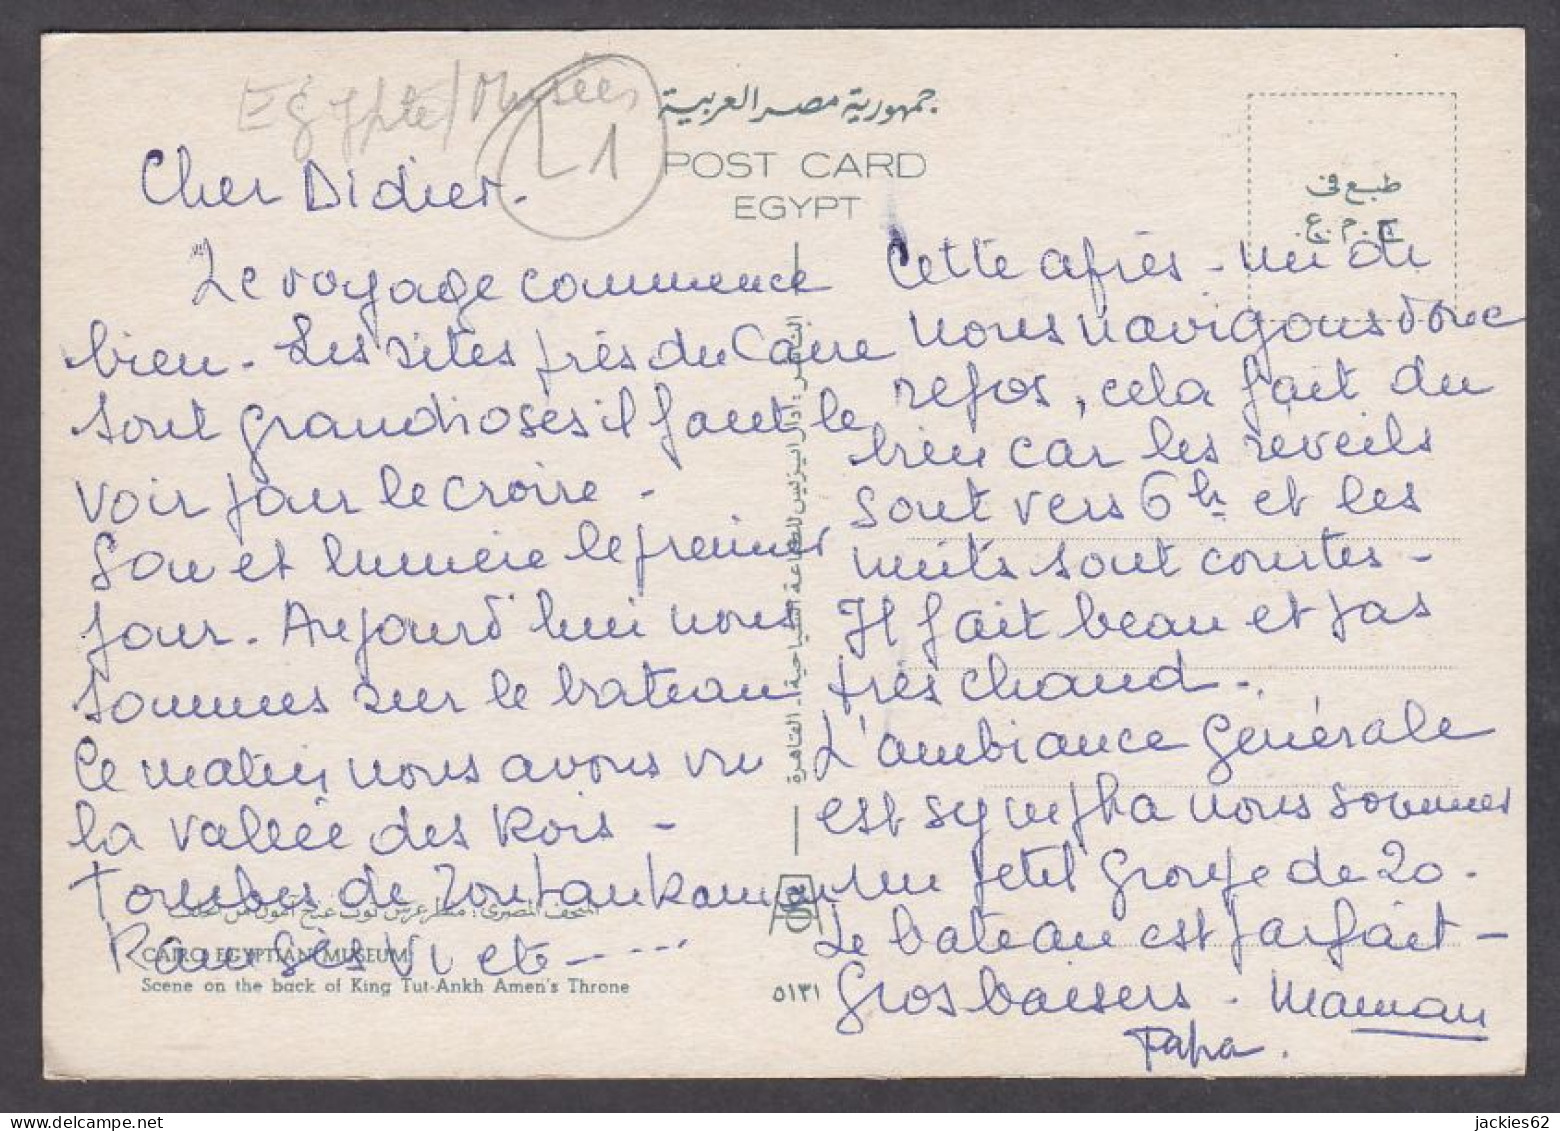 Egypte/Musées
L1
جمهورية مصر العربية
POST CARD
EGYPT
طبع فى
ج.م.ع.
Cher Didier.
Le voyage commence
bien - Les sites près du Caire
sont grandioses il faut le
voir pour le croire -
Son et lumière le premier
jour. Aujourd'hui nous
sommes sur le bateau
Ce matin, nous avons vu
la vallée des Rois -
Tombes de Toutankamon
Ramsès VI etc - ....
Cette après - midi
nous navigons donc
repos, cela fait du
bien car les reveils
sont vers 6h et les
nuits sont courtes -
Il fait beau et pas
très chaud -
L'ambiance générale
est sympha nous sommes
un petit groupe de 20.
Le bateau est parfait -
Gros baisers - Maman
Papa.
المتحف المصرى : منظر عرش توت عنخ آمون من الخلف
CAIRO EGYPTIAN MUSEUM
Scene on the back of King Tut-Ankh Amen's Throne
٥١٣١
jackies62